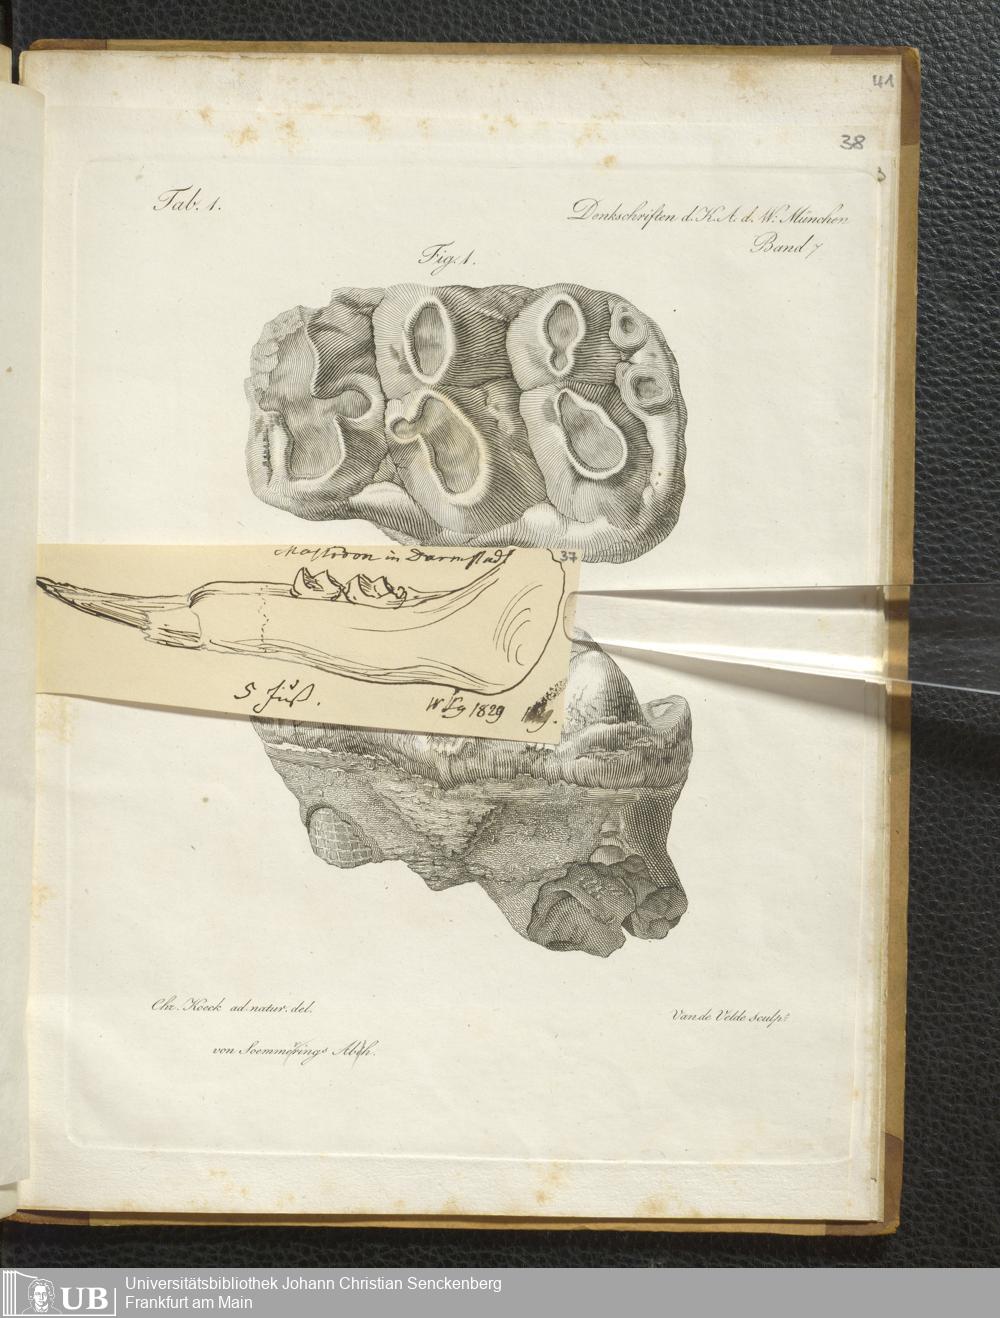 41
38
3
Tab. 1.
Denkschriften d. K. A. d. W. München
Band 7
Fig. 1.
Mastodon in Darmstadt
37
5 Fuß.
1829
Chr. Koeck ad. natur. del.
Van de Velde sculps.
von Soemmerings Abh.
UB
Universitätsbibliothek Johann Christian Senckenberg
Frankfurt am Main